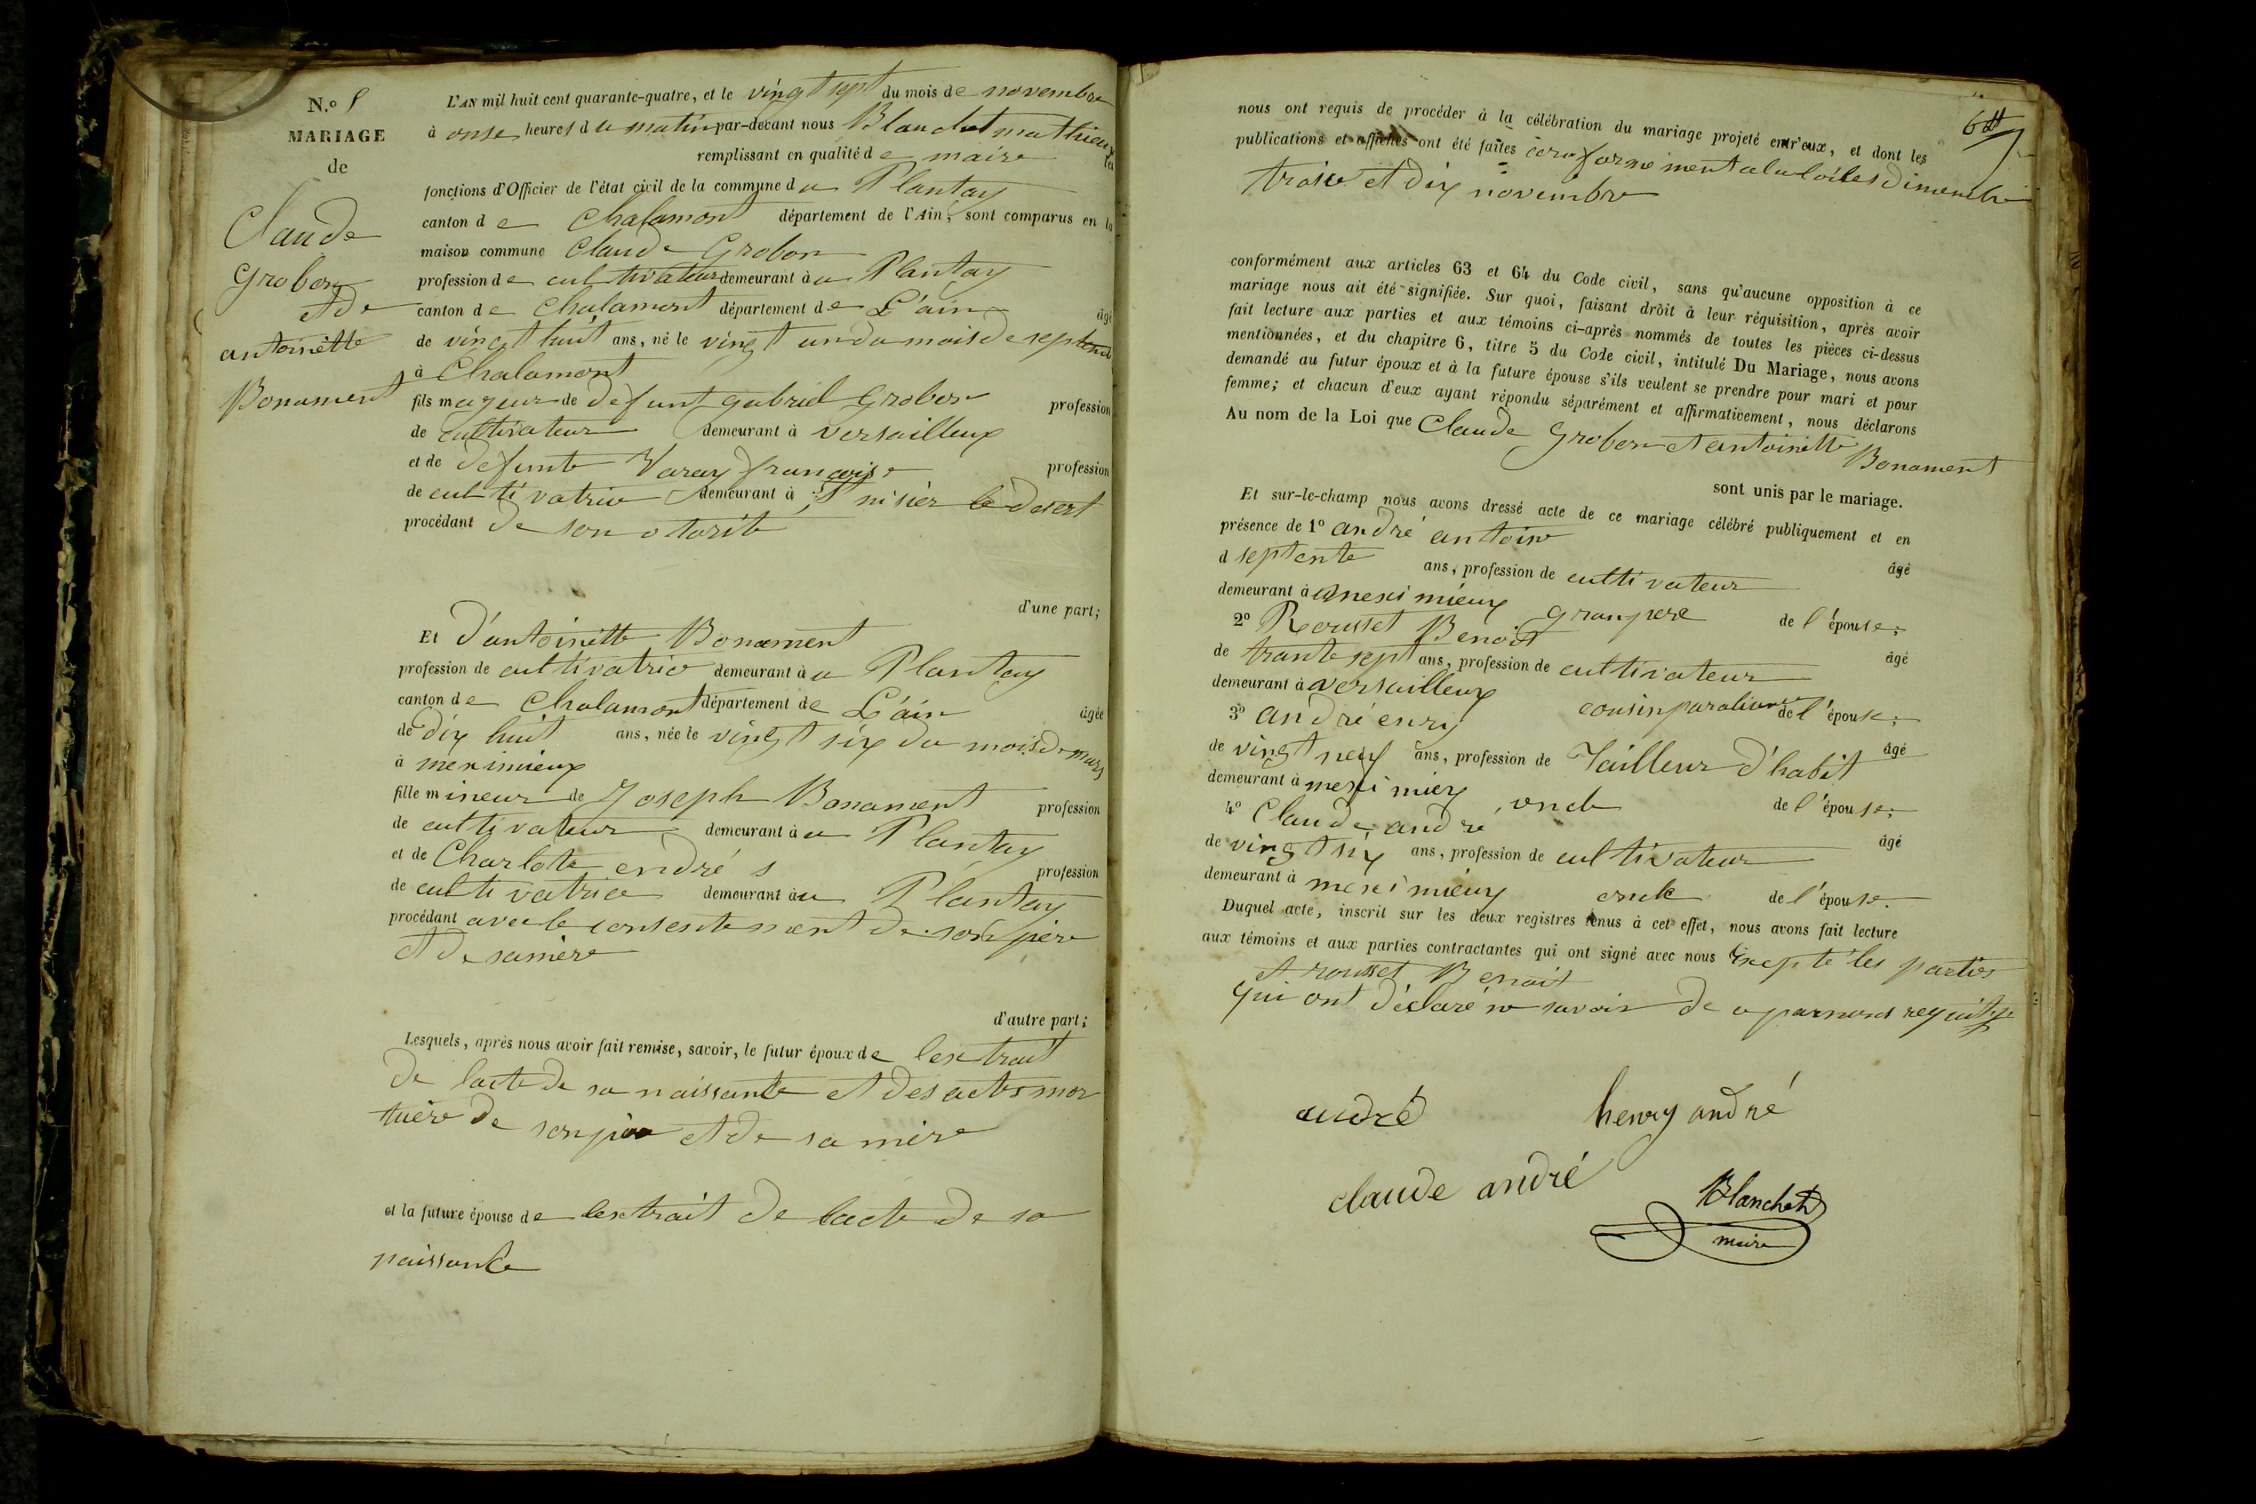 N.o 8
MARIAGE
de
Claude
Grobon
et de
antoinette
Bonament
L'AN mil huit cent quarante-quatre, et le vingt sept du mois de novembre
à onse heures du matin par-devant nous Blanchet mathieux
remplissant en qualité de maire les
fonctions d'Officier de l'état civil de la commune du Plantay
canton de Chalamont département de l'Ain, sont comparus en la
maison commune Claude Grobon
profession de cultivateur demeurant à u Plantay
canton de Chalamont département de L'ain âgé
de vingt huit ans, né le vingt un du mois de septembre
à Chalamont
fils mageur de defunt gabriel Grobon profession
de cultivateur demeurant à versailleux
et de defunte Varay françoise profession
de cultivatrice demeurant à St nisier le desert
procédant de son otorité
d'une part;
Et d'antoinette Bonament
profession de cultivatrice demeurant à u Plantay
canton de Chalamont département de L'ain âgée
de dix huit ans, née le vingt six du mois de mars
à meximieux
fille mineur de Joseph Bonament profession
de cultivateur demeurant à u Plantay
et de Charlote endré s profession
de cultivatrice demeurant à u Plantay
procédant avec le consentement de son père
et de sa mère
d'autre part;
Lesquels, après nous avoir fait remise, savoir, le futur époux de lextrait
de lacte de sa naissante et des actes mor
tuère de son père et de sa mère
et la future épouse de lextrait de lacte de sa
naissance
6
nous ont requis de procéder à la célébration du mariage projeté entr'eux, et dont les
publications et affiches ont été faites conformement a la loi les dimenche
troise et dix novembre
conformément aux articles 63 et 64 du Code civil, sans qu'aucune opposition à ce
mariage nous ait été signifiée. Sur quoi, faisant droit à leur réquisition, après avoir
fait lecture aux parties et aux témoins ci-après nommés de toutes les pièces ci-dessus
mentionnées, et du chapitre 6, titre 5 du Code civil, intitulé Du Mariage, nous avons
demandé au futur époux et à la future épouse s'ils veulent se prendre pour mari et pour
femme; et chacun d'eux ayant répondu séparément et affirmativement, nous déclarons
Au nom de la Loi que Claude Grobon et antoinette Bonament
sont unis par le mariage.
Et sur-le-champ nous avons dressé acte de ce mariage célébré publiquement et en
présence de 1o andré antoine âgé
d septente ans, profession de cultivateur
demeurant à meximieux granpere de l'épouse;
2o Rousset Benoit âgé
de trante sept ans, profession de cultivateur
demeurant à versailleux cousin paraliance de l'épouse;
3o andré enry âgé
de vingt neuf ans, profession de Tailleur d'habit
demeurant à meximiex oncle de l'épouse;
4o Claude andré âgé
de vingt six ans, profession de cultivateur
demeurant à meximieux oncle de l'épouse.
Duquel acte, inscrit sur les deux registres tenus à cet effet, nous avons fait lecture
aux témoins et aux parties contractantes qui ont signé avec nous excepté les parties
et rousset Benoit
qui ont déclaré ne savoir de ce par nous requis
andré
henry andré
claude andré
Blanchet
maire